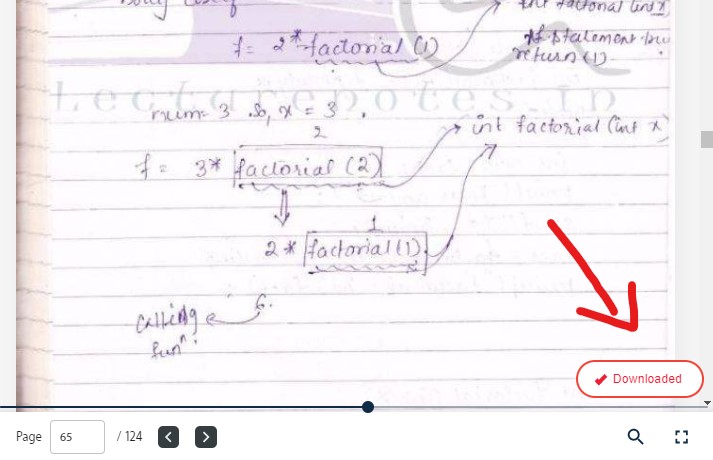 int factorial (int x)
f = 2 * factorial (1)
if statement
return (1).
Lecturenotes.in
num = 3 .So, x = 3 .
2
int factorial (int x)
f = 3* factorial (2)
1
2 * factorial (1)
6.
calling
funⁿ.
Downloaded
Page 65 / 124